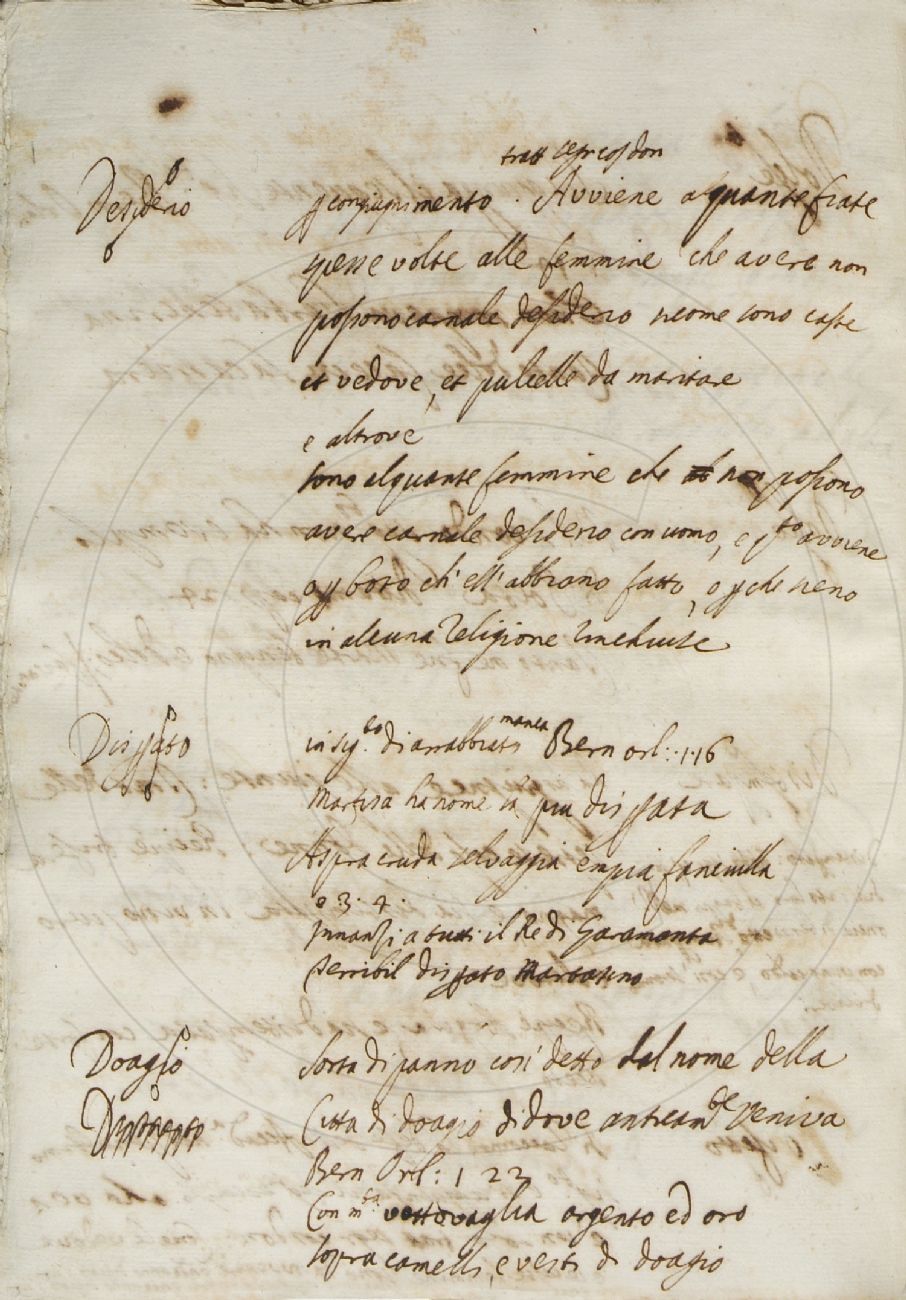 Desiderio
tratt segr cos don
p congiugnimento. Avviene alquante fiate
spesse volte alle femmine che avere non
possono carnale desiderio sicome sono caste
et vedove, et pulcelle da maritare
e altrove
sono alquante femmine che non possono
avere carnale desiderio con uomo, e q.to avviene
o p boto ch' ell' abbiano fatto, o p che sieno
in alcuna religione rinchiuse
Dispato
in sig.to di arrabbiato Bern orl: 1.16
Marfisa ha nome la piu dispata
Aspra cruda selvaggia empia fanciulla
e 3. 4.
Innanzi a tutti il Re di Garamanta
Terribil dispato Martasino
Doagio
Sorta di panno cosi detto dal nome della
Citta di doagio di dove anticam.te veniva
Bern Orl: 1 22
Con m.ta vettovaglia argento ed oro
sopra camelli, e vesti di doagio